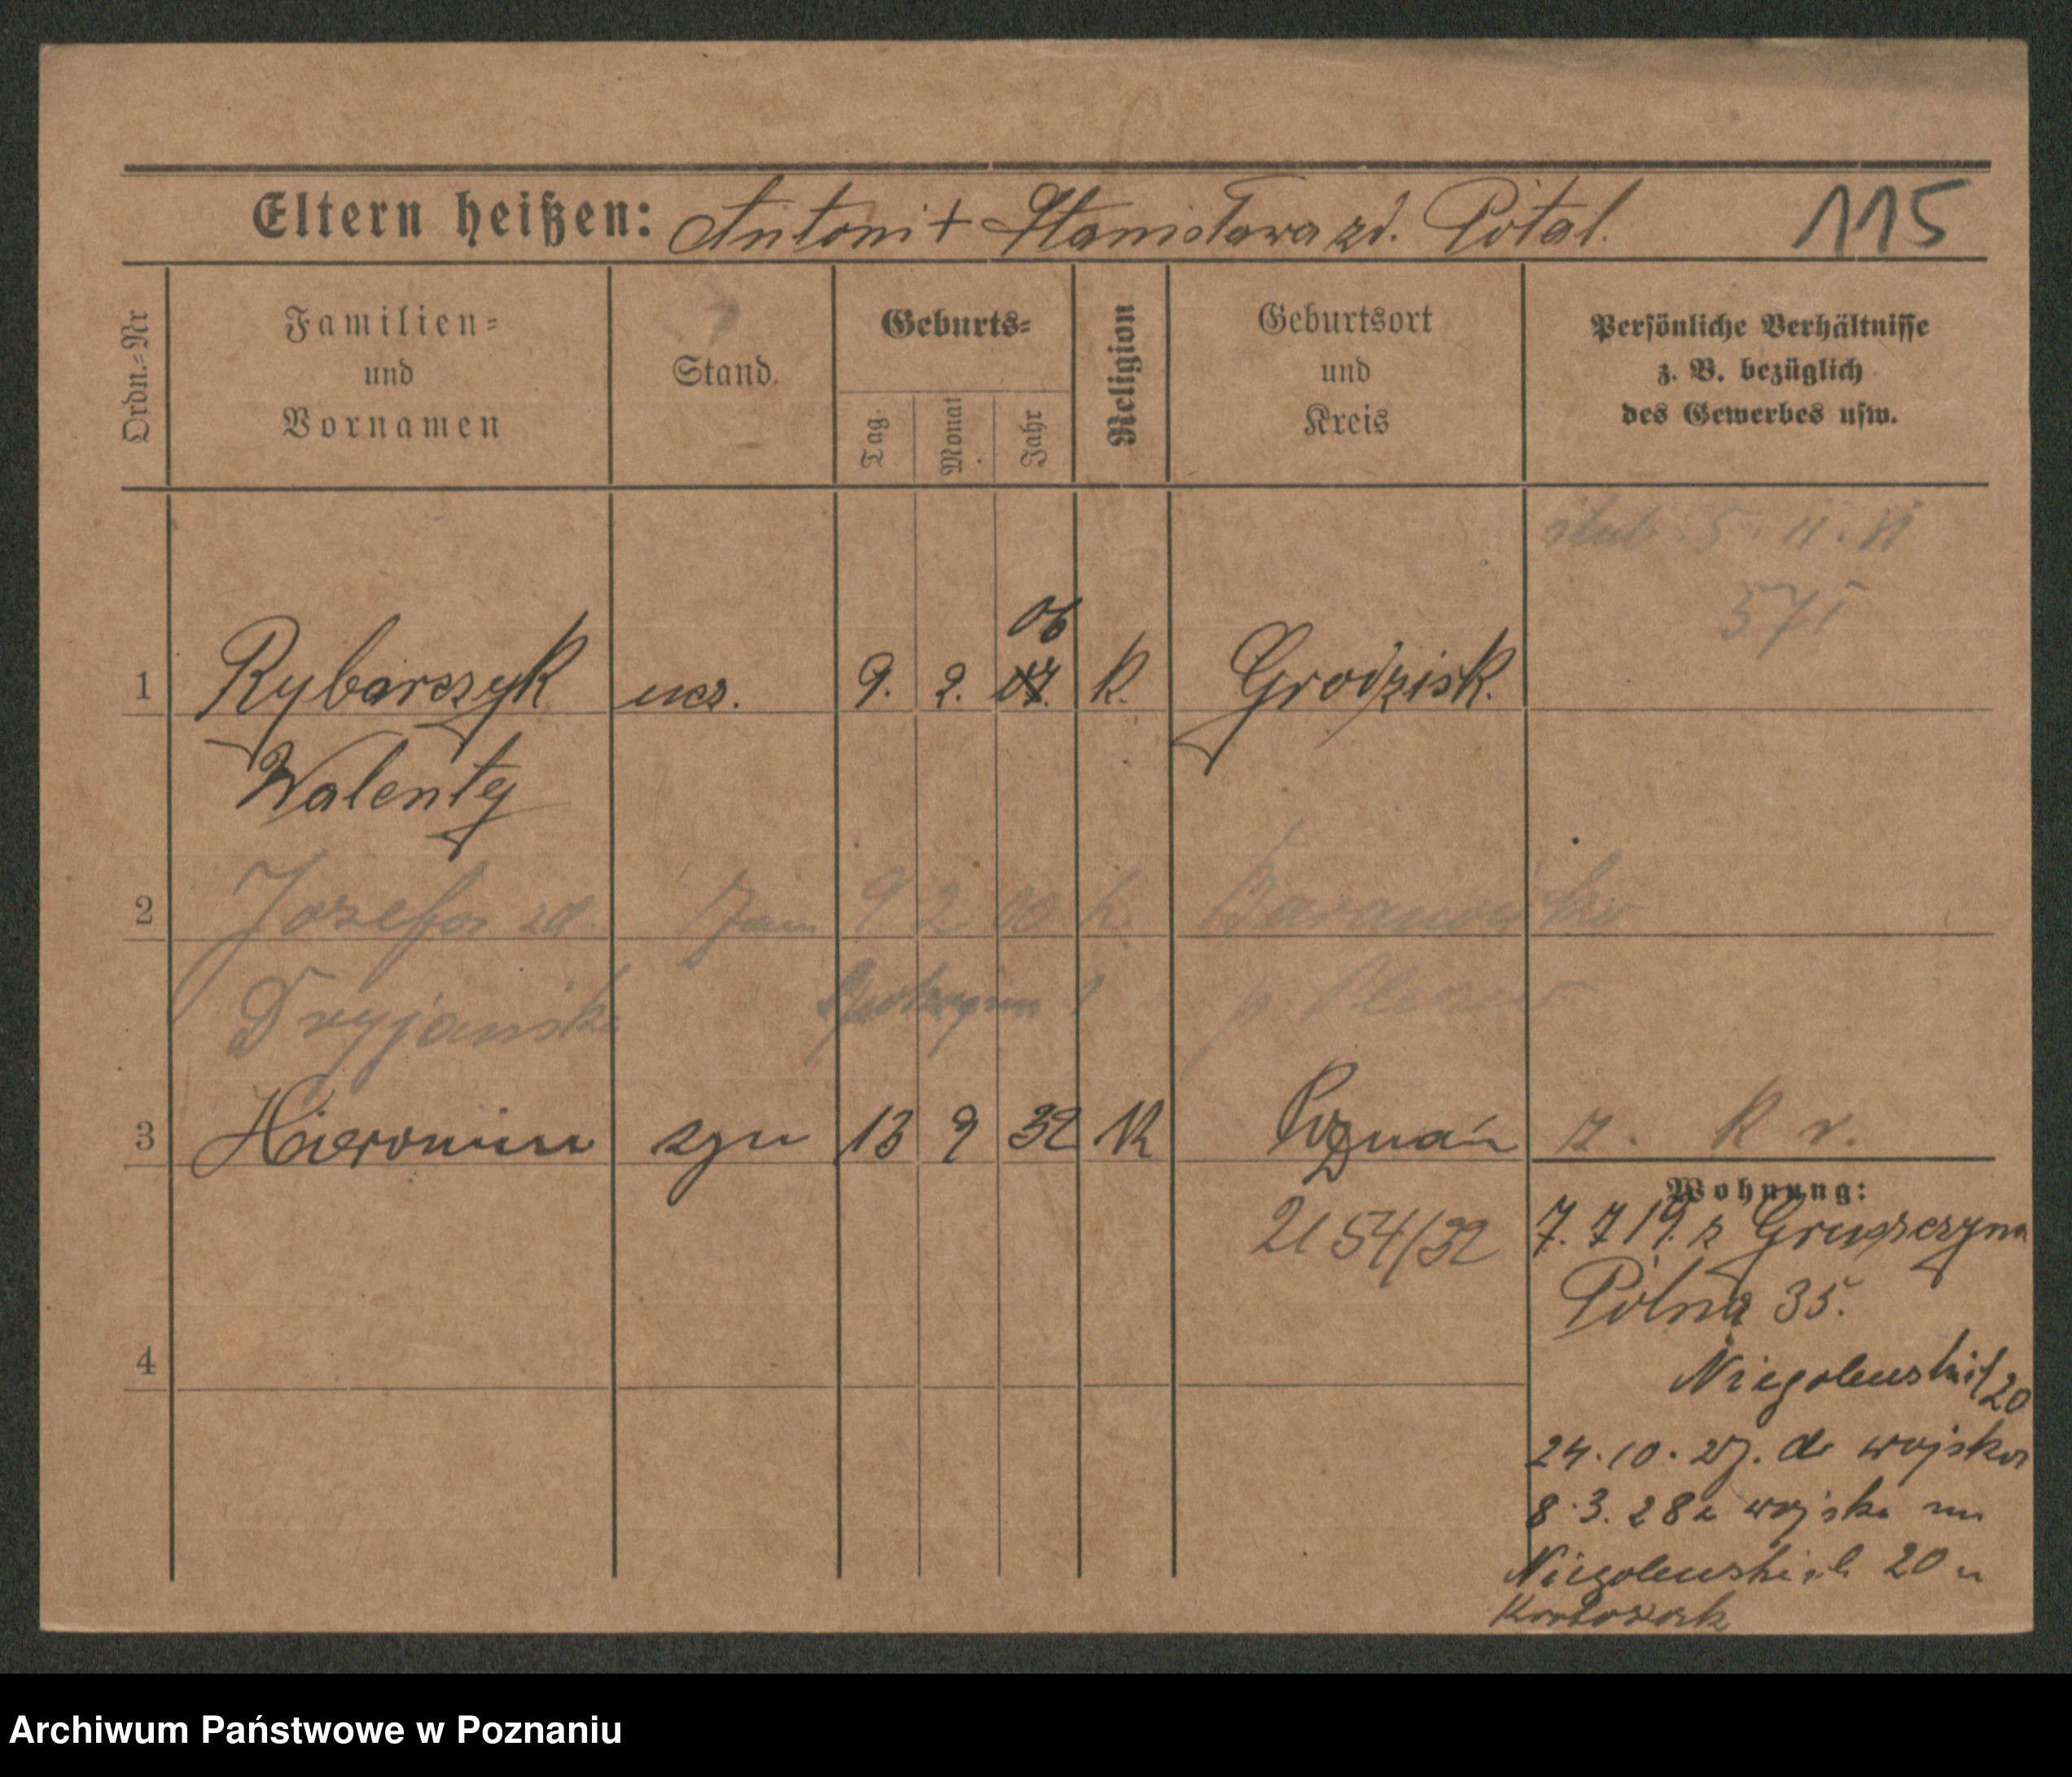 Eltern heißen: Antoni + Stanisława zd. Pótal. 115
Ordn.=Nr
Familien=
und
Vornamen
Stand
Geburts=
Tag
Monat
Jahr
Religion
Geburtsort
und
Kreis
Persönliche Verhältnisse
z. B. bezüglich
des Gewerbes usw.
ślub 5. 11. 31
571
06
1 Rybarczyk ucz. 9. 2. 07. k. Grodzisk.
Walenty
2 Józefa zd. 9 2 00 k. Baranowsko
Dryjańska p.
3 Hieronim syn 13 9 32 rk Poznań z. K r.
2154/32
Wohnung:
7. 7 19. z Gruszczyna
Pólna 35.
4
Niegolewskich 20
24. 10. 27. do wojska
8. 3. 28 z wojska na
Niegolewskich 20 u
Archiwum Państwowe w Poznaniu